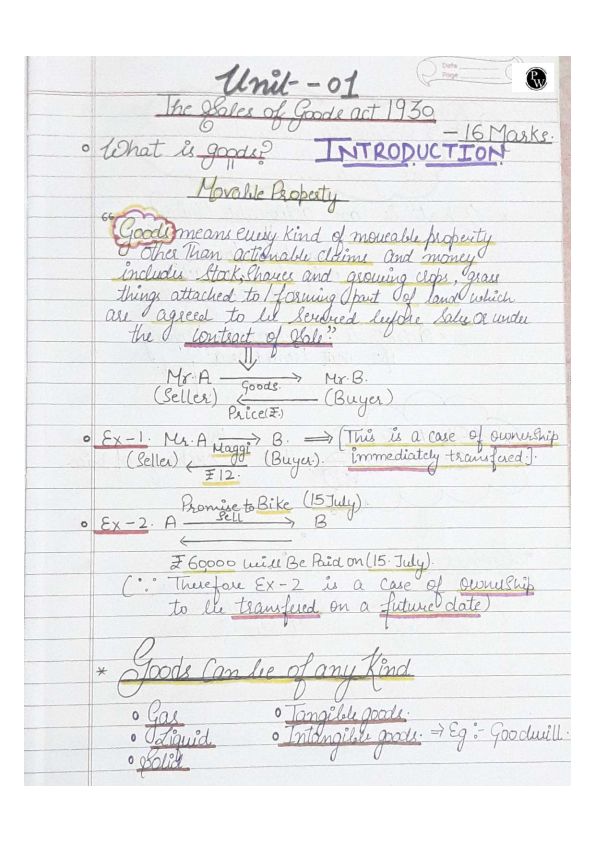 Date
Page
PW
Unit - 01
The Sales of Goods act 1930
- 16 Marks.
• What is goods? INTRODUCTION
Movable Property
"Goods means every kind of moveable property
other Than actionable claims and money
includes Stock, Shares and growing crops, grass
things attached to / forming part of land which
are agreed to be servered before sales or under
the contract of Sale."
Mr. A → Mr. B.
Goods
(Seller) ← (Buyer)
Price(₹.)
• Ex-1. Mr. A → B. ⇒ [This is a case of ownership
Maggi
(Seller) ← (Buyer). immediately transfered].
₹12.
Promise to Bike (15 July).
• Ex-2. A → B
Sell
←
₹ 60,000 will Be Paid on (15. July).
(∵ Therefore Ex-2 is a case of ownership
to be transfered on a future date)
* Goods Can be of any Kind
• Gas • Tangible goods.
• Liquid • Intangible goods. ⇒ Eg :- Goodwill.
• Solid